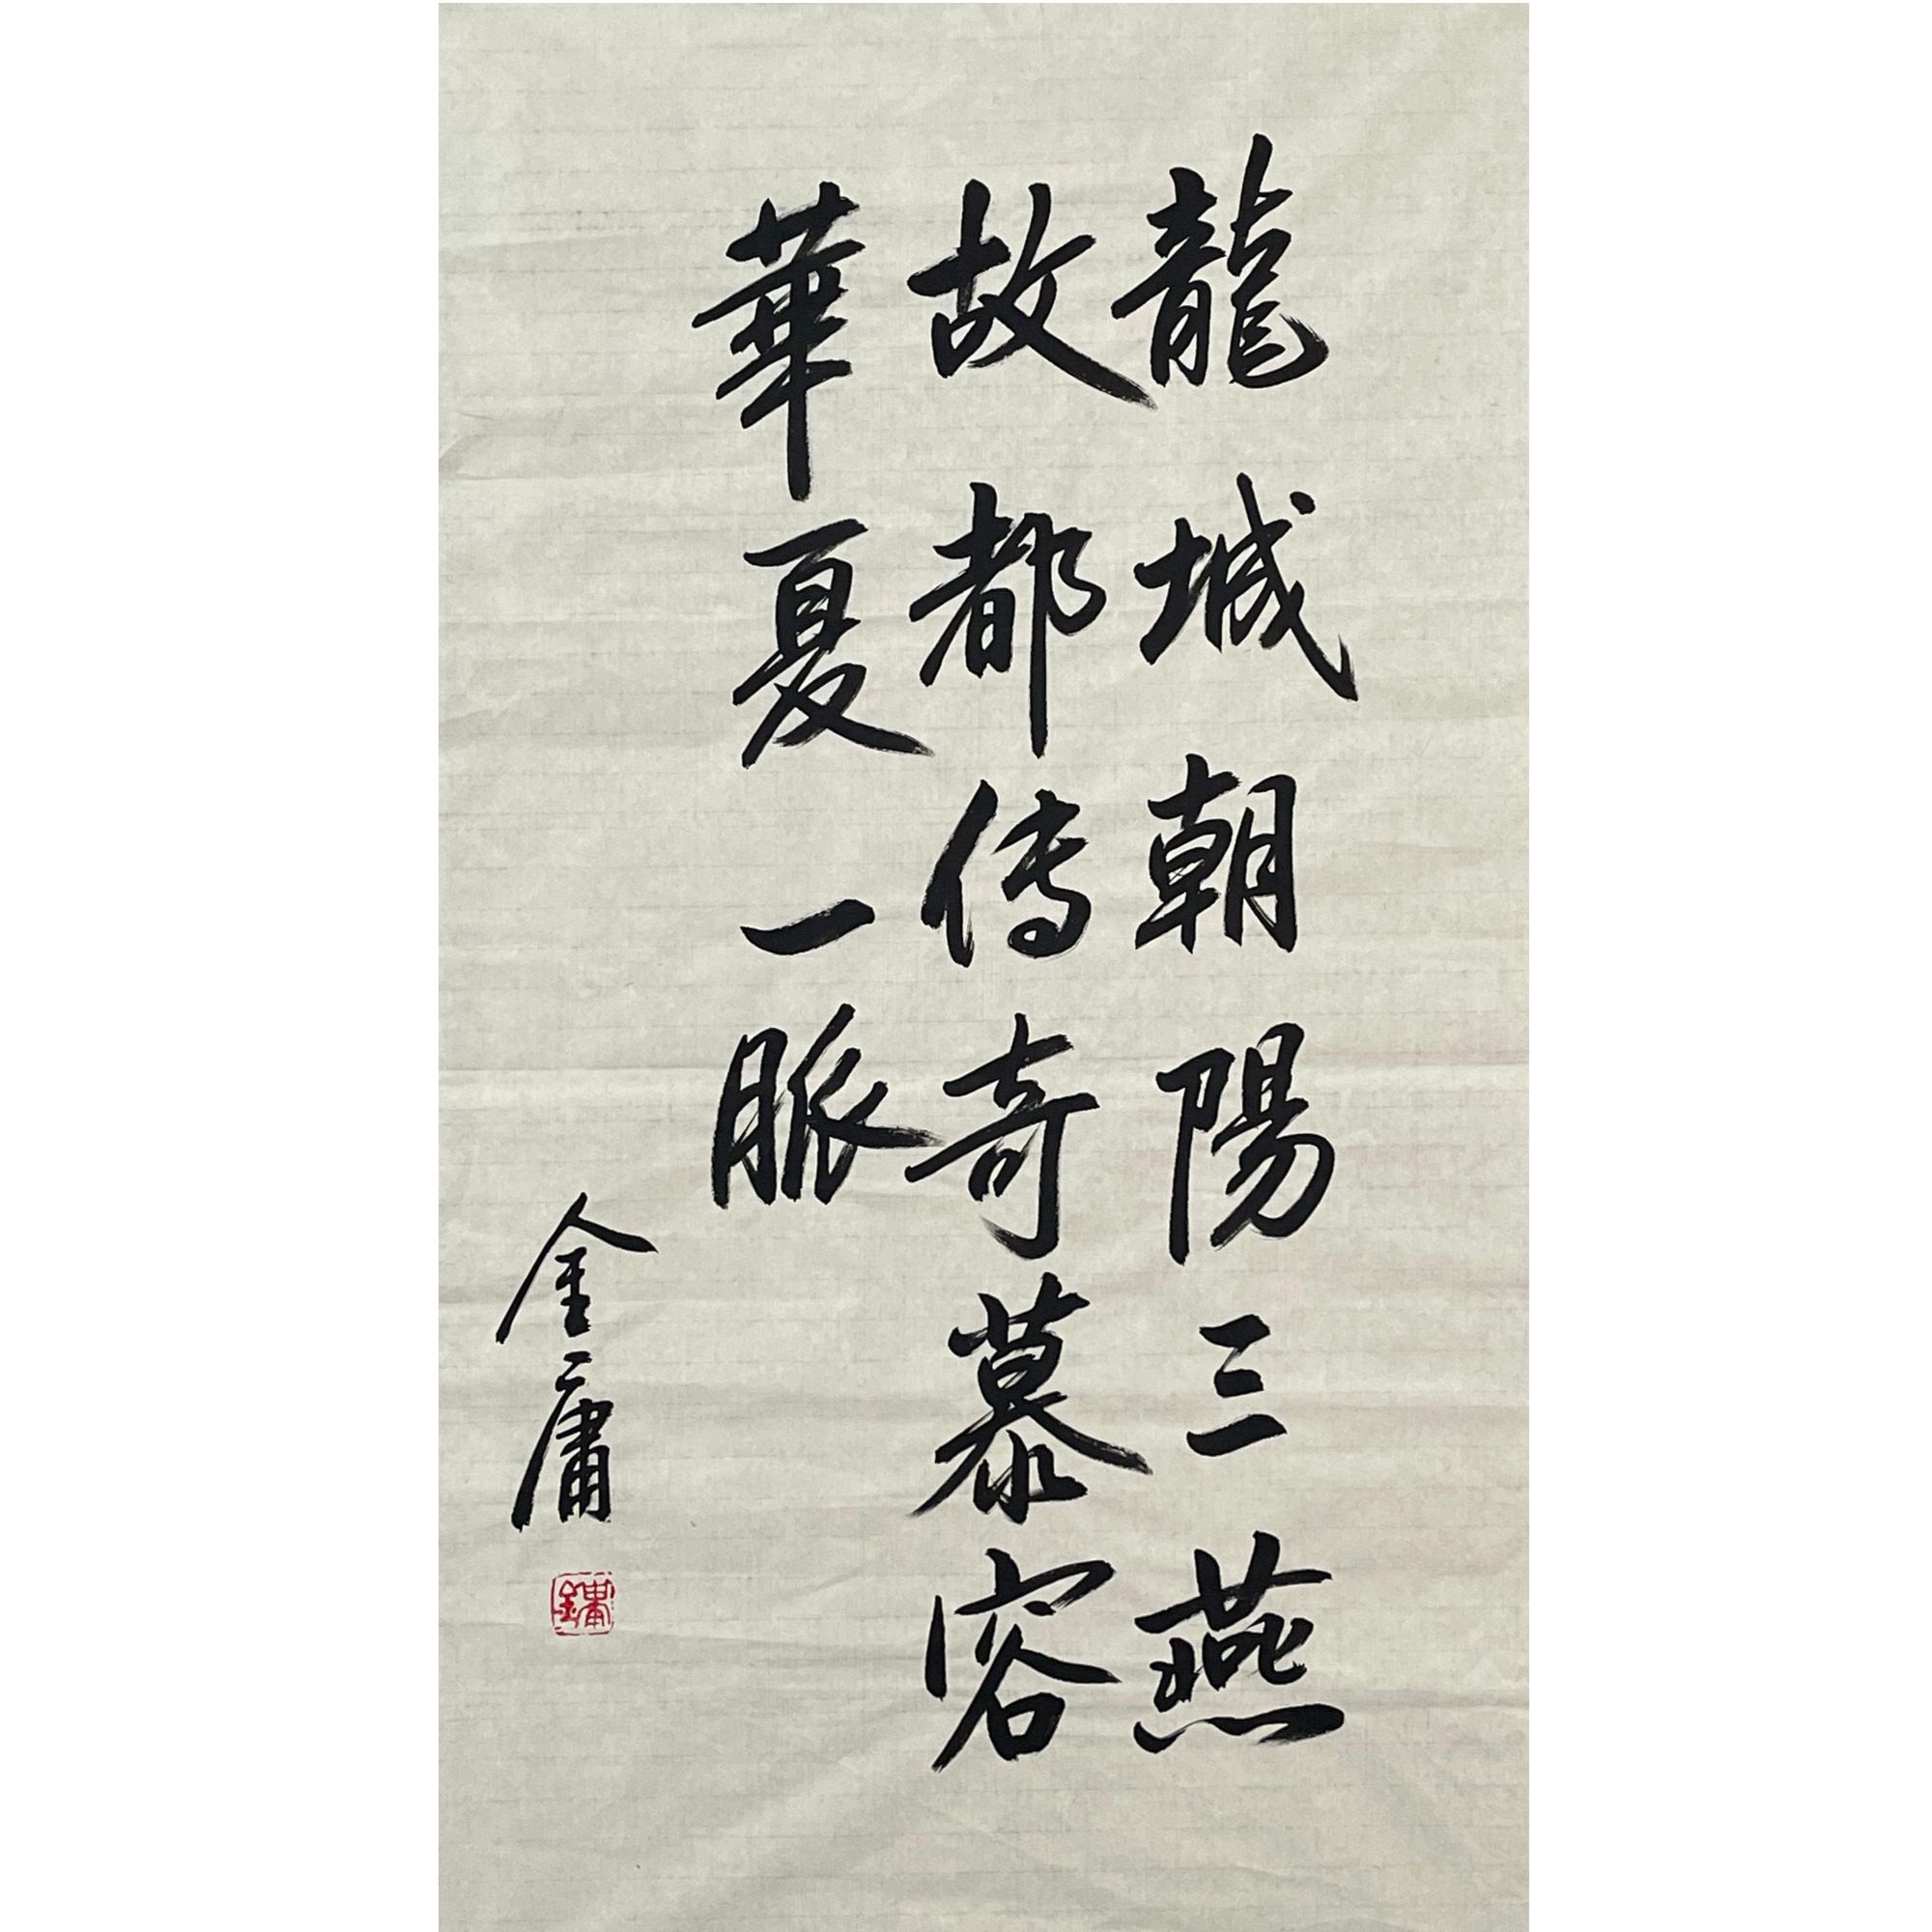 龍城朝陽三燕
故都傳奇慕容
華夏一脈
金庸